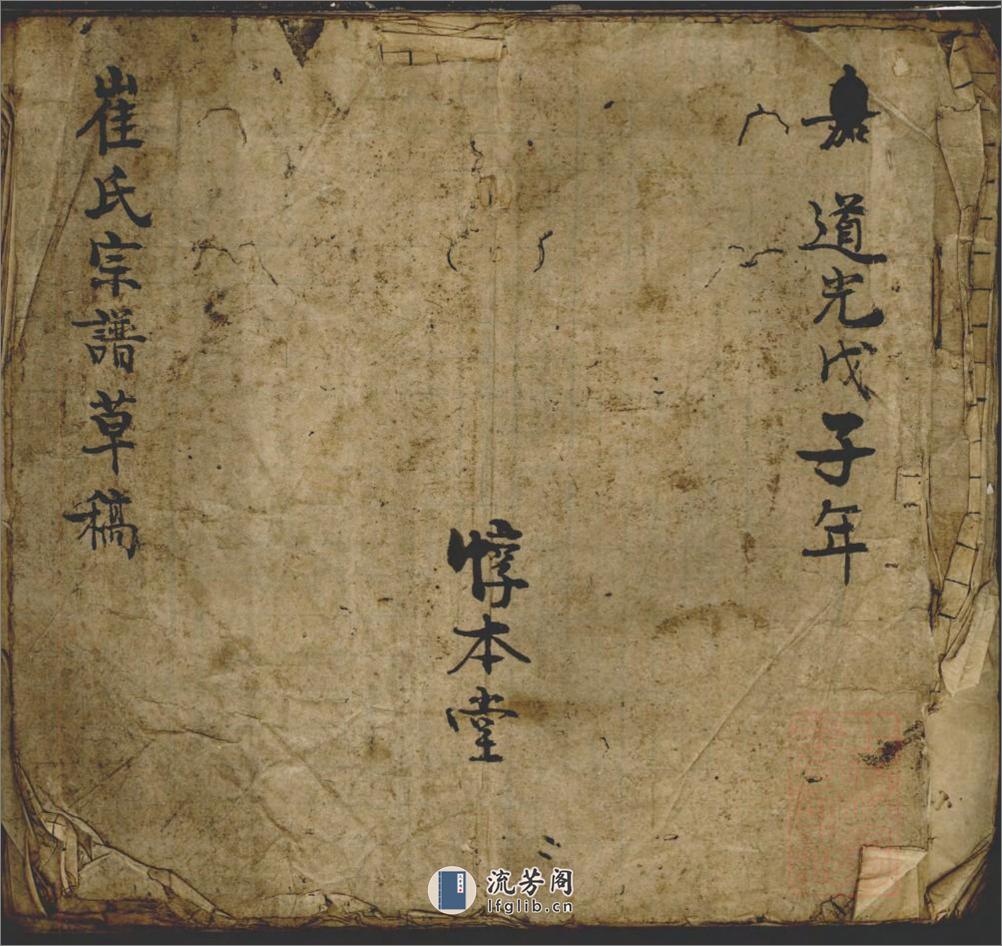 嘉 道光戊子年
惇本堂
崔氏宗譜草稿
流芳阁
lfglib.cn